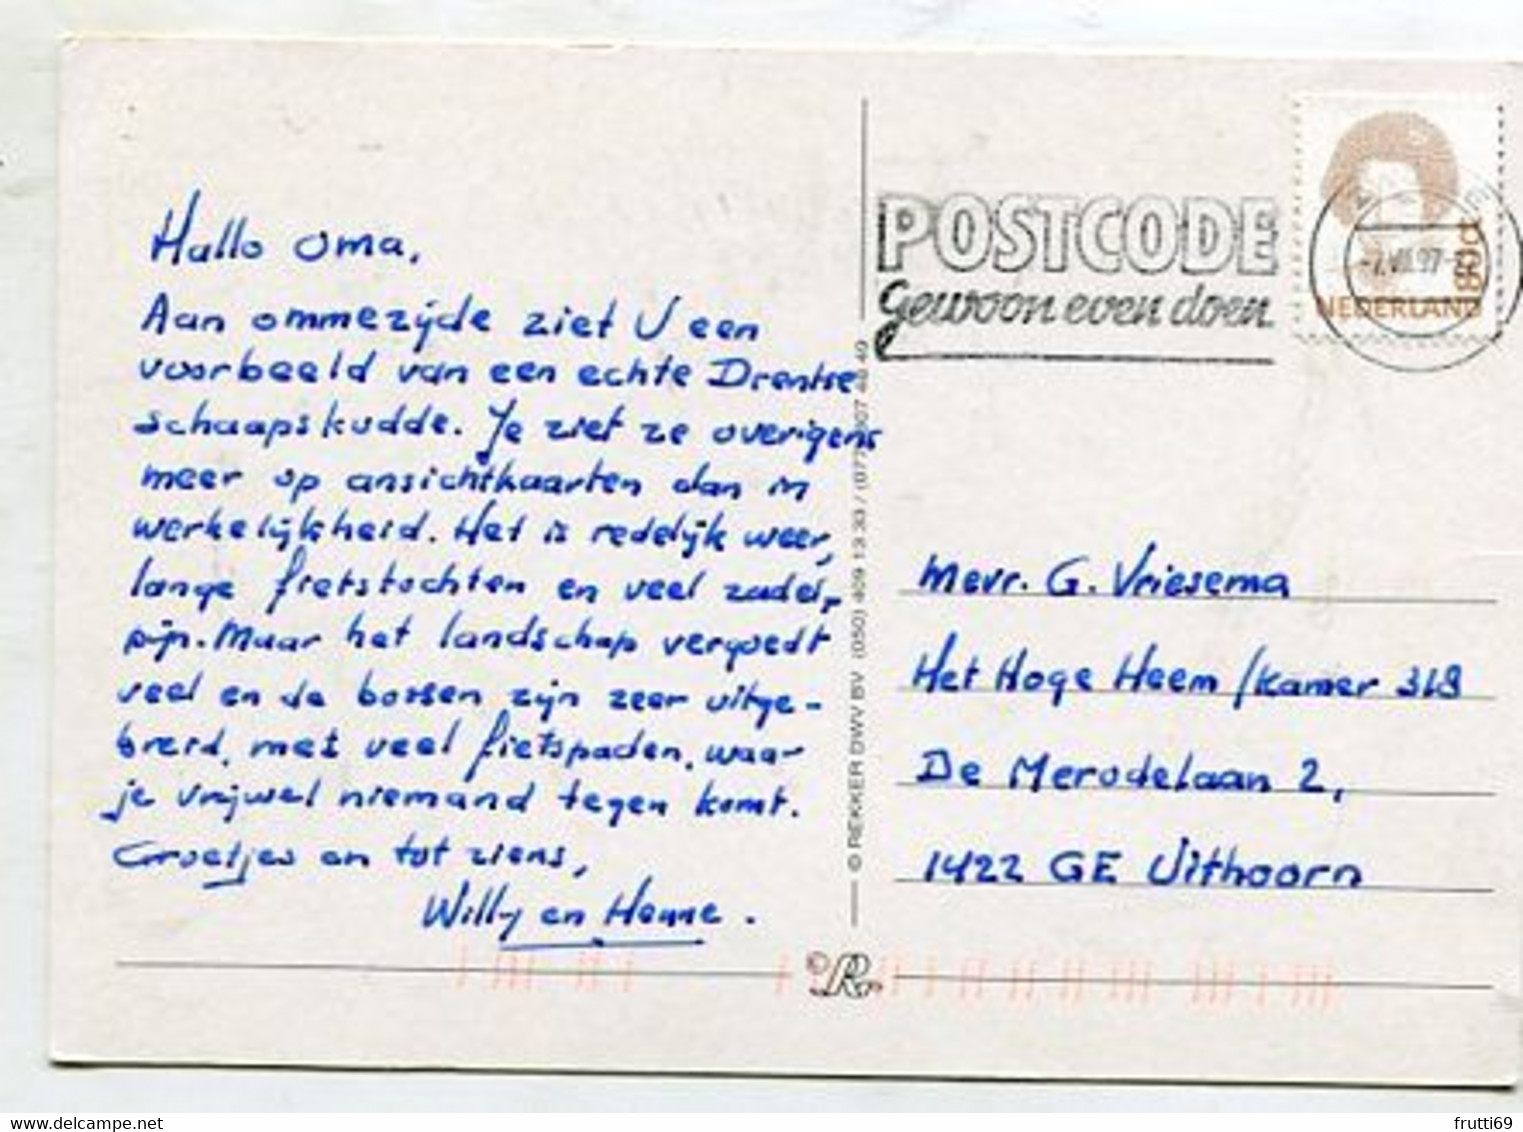 Hallo oma,
Aan ommezijde ziet U een
voorbeeld van een echte Drentse
schaapskudde. Je ziet ze overigens
meer op ansichtkaarten dan in
werkelijkheid. Het is redelijk weer,
lange fietstochten en veel zadel-
pijn. Maar het landschap vergoedt
veel en de bossen zijn zeer uitge-
breid, met veel fietspaden, waar
je vrijwel niemand tegen komt.
Groetjes en tot ziens,
Willy en Hanne.
© REKKER DWV BV (050) 409 13 33 / (077)
R
POSTCODE
Gewoon even doen
80c
NEDERLAND
97
Mevr. G. Vriesema
Het Hoge Heem / Kamer 318
De Merodelaan 2,
1422 GE Uithoorn
frutti69